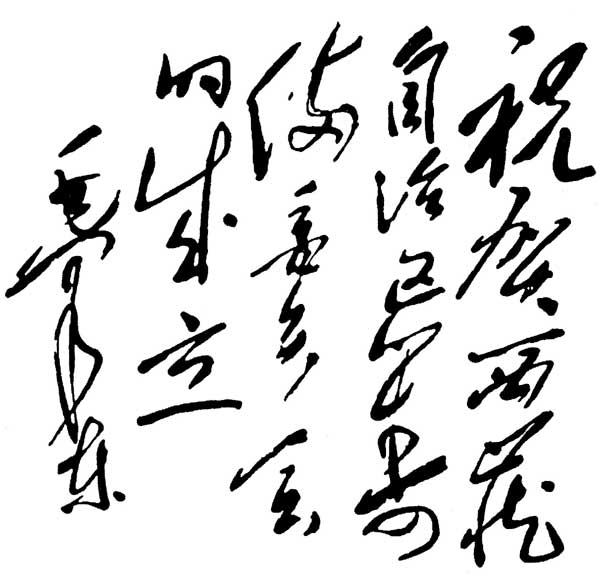 祝贺西藏
自治区筹
備委员会
的成立
毛泽东